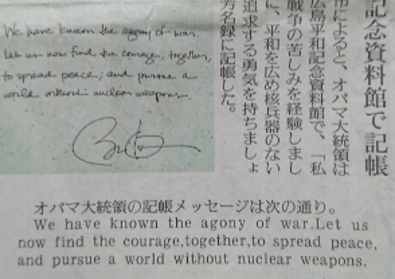 記念資料館で記帳
市によると、オバマ大統領は
広島平和記念資料館で、「私
戦争の苦しみを経験しまし
に、平和を広め核兵器のない
追求する勇気を持ちましょ
芳名録に記帳した。
We have known the agony of war.
Let us now find the courage, together,
to spread peace, and pursue a
world without nuclear weapons.
オバマ大統領の記帳メッセージは次の通り。
We have known the agony of war.Let us
now find the courage,together,to spread peace,
and pursue a world without nuclear weapons.